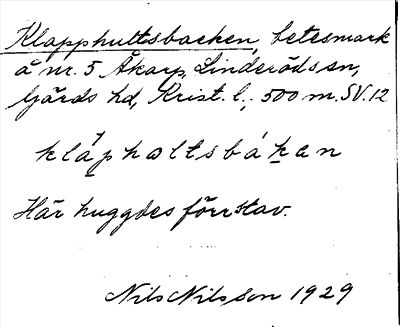 Klapphultsbacken, betesmark
å nr. 5 Åkarp, Linderöds sn,
Gärds hd, Krist. l.; 500 m. SV. 12
klápholtsbákan
Här huggdes förr stav.
Nils Nilsson 1929